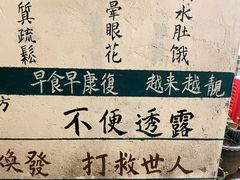 質疏鬆
暈眼花
水肚饿
早食早康復 越来越靚
方 不便透露
煥發 打救世人